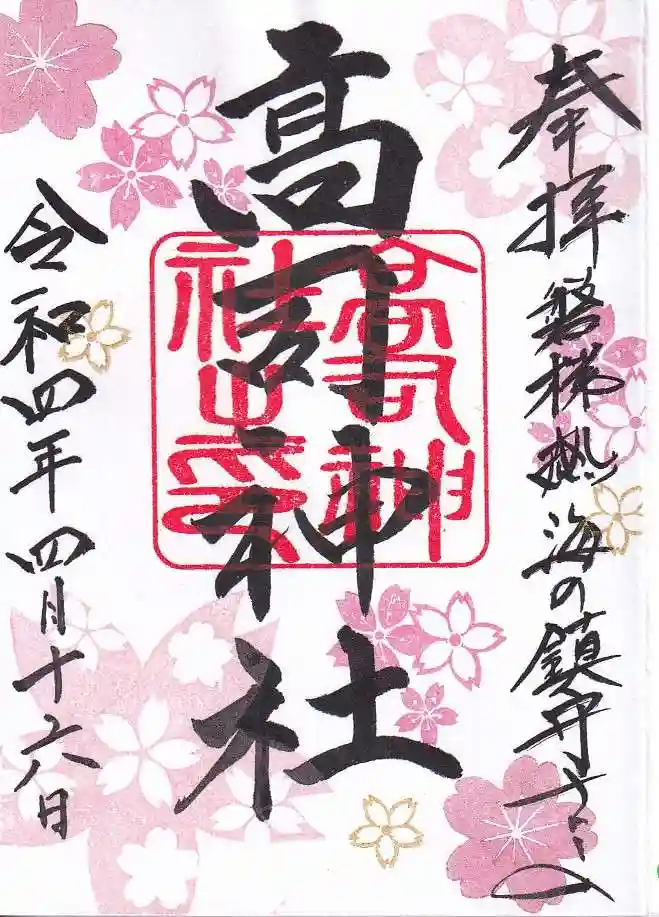 奉拝 磐梯熱海の鎮守さま
高司神社
高司神社之印
令和四年四月十六日